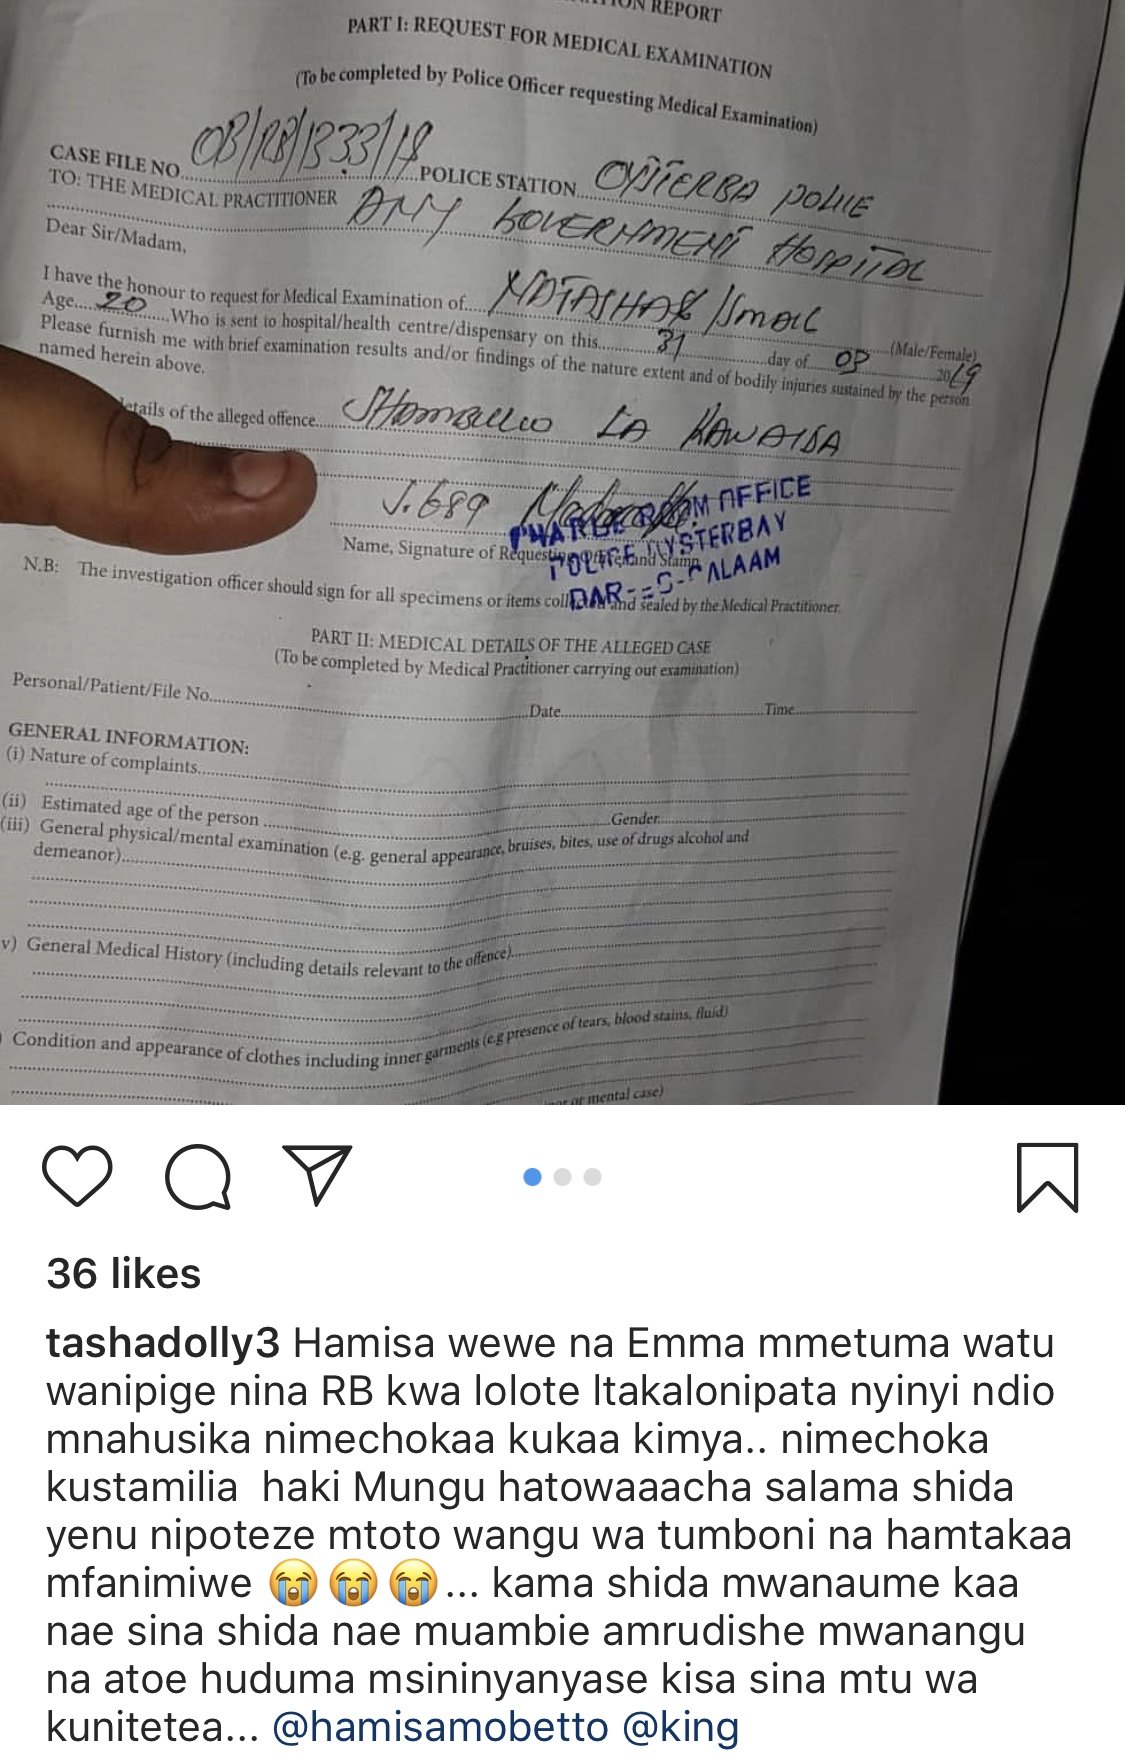 REPORT
PART I: REQUEST FOR MEDICAL EXAMINATION
(To be completed by Police Officer requesting Medical Examination)
CASE FILE NO. OB/RB/1333/19 POLICE STATION OYSTERBA POLICE
TO: THE MEDICAL PRACTITIONER ANY GOVERNMENT HOSPITAL
Dear Sir/Madam,
I have the honour to request for Medical Examination of NATASHA (Male/Female)
Age 20 Who is sent to hospital/health centre/dispensary on this 31 day of 03 2019
Please furnish me with brief examination results and/or findings of the nature extent and of bodily injuries sustained by the person
named herein above.
etails of the alleged offence SHAMBULIO LA KAWAIDA
J.689
Name, Signature of Requesting and Stamp
ROOM OFFICE
POLICE OYSTERBAY
DAR-ES-SALAAM
N.B: The investigation officer should sign for all specimens or items and sealed by the Medical Practitioner.
PART II: MEDICAL DETAILS OF THE ALLEGED CASE
(To be completed by Medical Practitioner carrying out examination)
Personal/Patient/File No. Date Time
GENERAL INFORMATION:
(i) Nature of complaints
(ii) Estimated age of the person Gender
(iii) General physical/mental examination (e.g. general appearance, bruises, bites, use of drugs alcohol and
demeanor)
v) General Medical History (including details relevant to the offence)
) Condition and appearance of clothes including inner garments (e.g presence of tears, blood stains, fluid)
or mental case)
36 likes
tashadolly3 Hamisa wewe na Emma mmetuma watu
wanipige nina RB kwa lolote ltakalonipata nyinyi ndio
mnahusika nimechokaa kukaa kimya.. nimechoka
kustamilia haki Mungu hatowaaacha salama shida
yenu nipoteze mtoto wangu wa tumboni na hamtakaa
mfanimiwe 😭😭😭... kama shida mwanaume kaa
nae sina shida nae muambie amrudishe mwanangu
na atoe huduma msininyanyase kisa sina mtu wa
kunitetea... @hamisamobetto @king